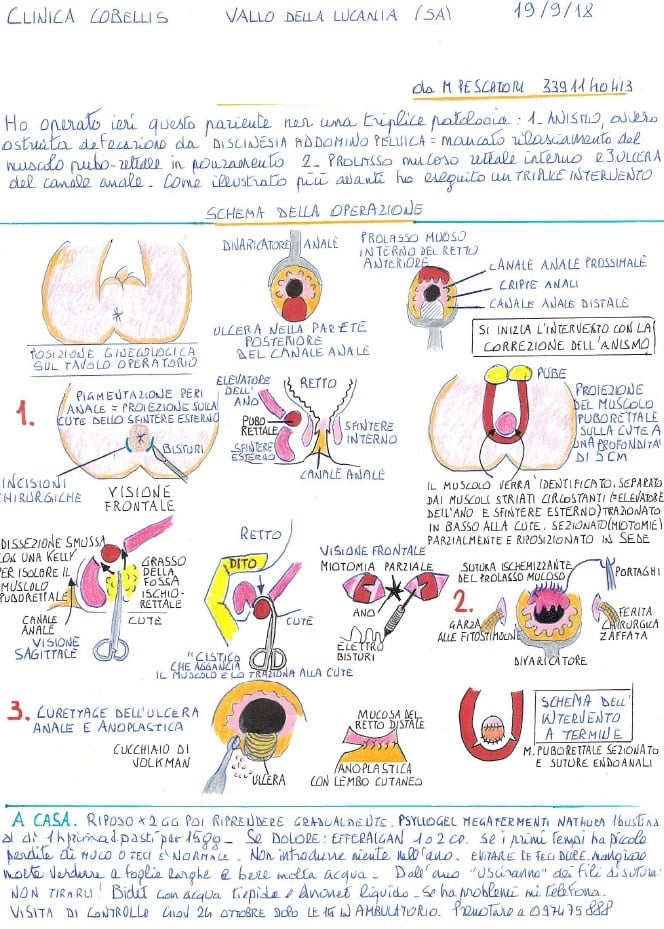 CLINICA COBELLIS VALLO DELLA LUCANIA (SA) 19/9/18
da M PESCATORI 3391140413
Ho operato ieri questo paziente per una triplice patologia: 1- ANISMO, ovvero
ostruita defecazione da DISCINESIA ADDOMINO PELVICA = mancato rilasciamento del
muscolo pubo-rettale in ponzamento 2- PROLASSO mucoso rettale interno e 3 ULCERA
del canale anale - Come illustrato più avanti ho eseguito un TRIPLICE INTERVENTO
SCHEMA DELLA OPERAZIONE
POSIZIONE GINECOLOGICA
SUL TAVOLO OPERATORIO
DIVARICATORE ANALE
ULCERA NELLA PARETE
POSTERIORE
DEL CANALE ANALE
PROLASSO MUOSO
INTERNO DEL RETTO
ANTERIORE
CANALE ANALE PROSSIMALE
CRIPTE ANALI
CANALE ANALE DISTALE
SI INIZIA L'INTERVENTO CON LA
CORREZIONE DELL'ANISMO
1.
PIGMENTAZIONE PERI
ANALE = PROIEZIONE SULLA
CUTE DELLO SFINTERE ESTERNO
BISTURI
INCISIONI
CHIRURGICHE
VISIONE
FRONTALE
ELEVATORE
DELL'
ANO
RETTO
PUBO
RETTALE
SFINTERE
ESTERNO
SFINTERE
INTERNO
CANALE ANALE
PUBE
PROIEZIONE
DEL MUSCOLO
PUBORETTALE
SULLA CUTE A
UNA PROFONDITA'
DI 5 CM
IL MUSCOLO VERRA' IDENTIFICATO, SEPARATO
DAI MUSCOLI STRIATI CIRCOSTANTI (=ELEVATORE
DELL'ANO E SFINTERE ESTERNO) TRAZIONATO
IN BASSO ALLA CUTE, SEZIONATO (MIOTOMIE)
PARZIALMENTE E RIPOSIZIONATO IN SEDE
DISSEZIONE SMUSSA
CON UNA KELLY
PER ISOLARE IL
MUSCOLO
PUBORETTALE
CANALE
ANALE
VISIONE
SAGITTALE
GRASSO
DELLA
FOSSA
ISCHIO-
RETTALE
CUTE
RETTO
DITO
CUTE
"CISTICO"
CHE AGGANCIA
IL MUSCOLO E LO TRAZIONA ALLA CUTE
VISIONE FRONTALE
MIOTOMIA PARZIALE
ANO
ELETTRO
BISTURI
2.
SUTURA ISCHEMIZZANTE
DEL PROLASSO MUCOSO
PORTAGHI
GARZA
ALLE FITOSTIMOLINE
FERITA
CHIRURGICA
ZAFFATA
DIVARICATORE
3. CURETTAGE DELL'ULCERA
ANALE E ANOPLASTICA
CUCCHIAIO DI
VOLKMAN
ULCERA
MUCOSA DEL
RETTO DISTALE
ANOPLASTICA
CON LEMBO CUTANEO
SCHEMA DELL'
INTERVENTO
A TERMINE
M. PUBORETTALE SEZIONATO
E SUTURE ENDOANALI
A CASA. RIPOSO x 2 GG POI RIPRENDERE GRADUALMENTE. PSYLLOGEL MEGAFERMENTI NATHURA 1 bustina
al dì 1h prima d. pasti per 15 gg - Se DOLORE: EFFERALGAN 1 o 2 CP. Se i primi tempi ha piccole
perdite di MUCO O FECI E' NORMALE. Non introdurre niente nell'ano. EVITARE LE FECI DURE. mangiare
molte verdure a foglie larghe e bere molta acqua. Dall'ano "USCIRANNO" dei fili di sutura:
NON TIRARLI! Bidet con acqua tiepida e liquido. Se ha problemi mi telefona.
VISITA DI CONTROLLO GIOV 24 OTTOBRE IN AMBULATORIO. Prenotare a 097475888